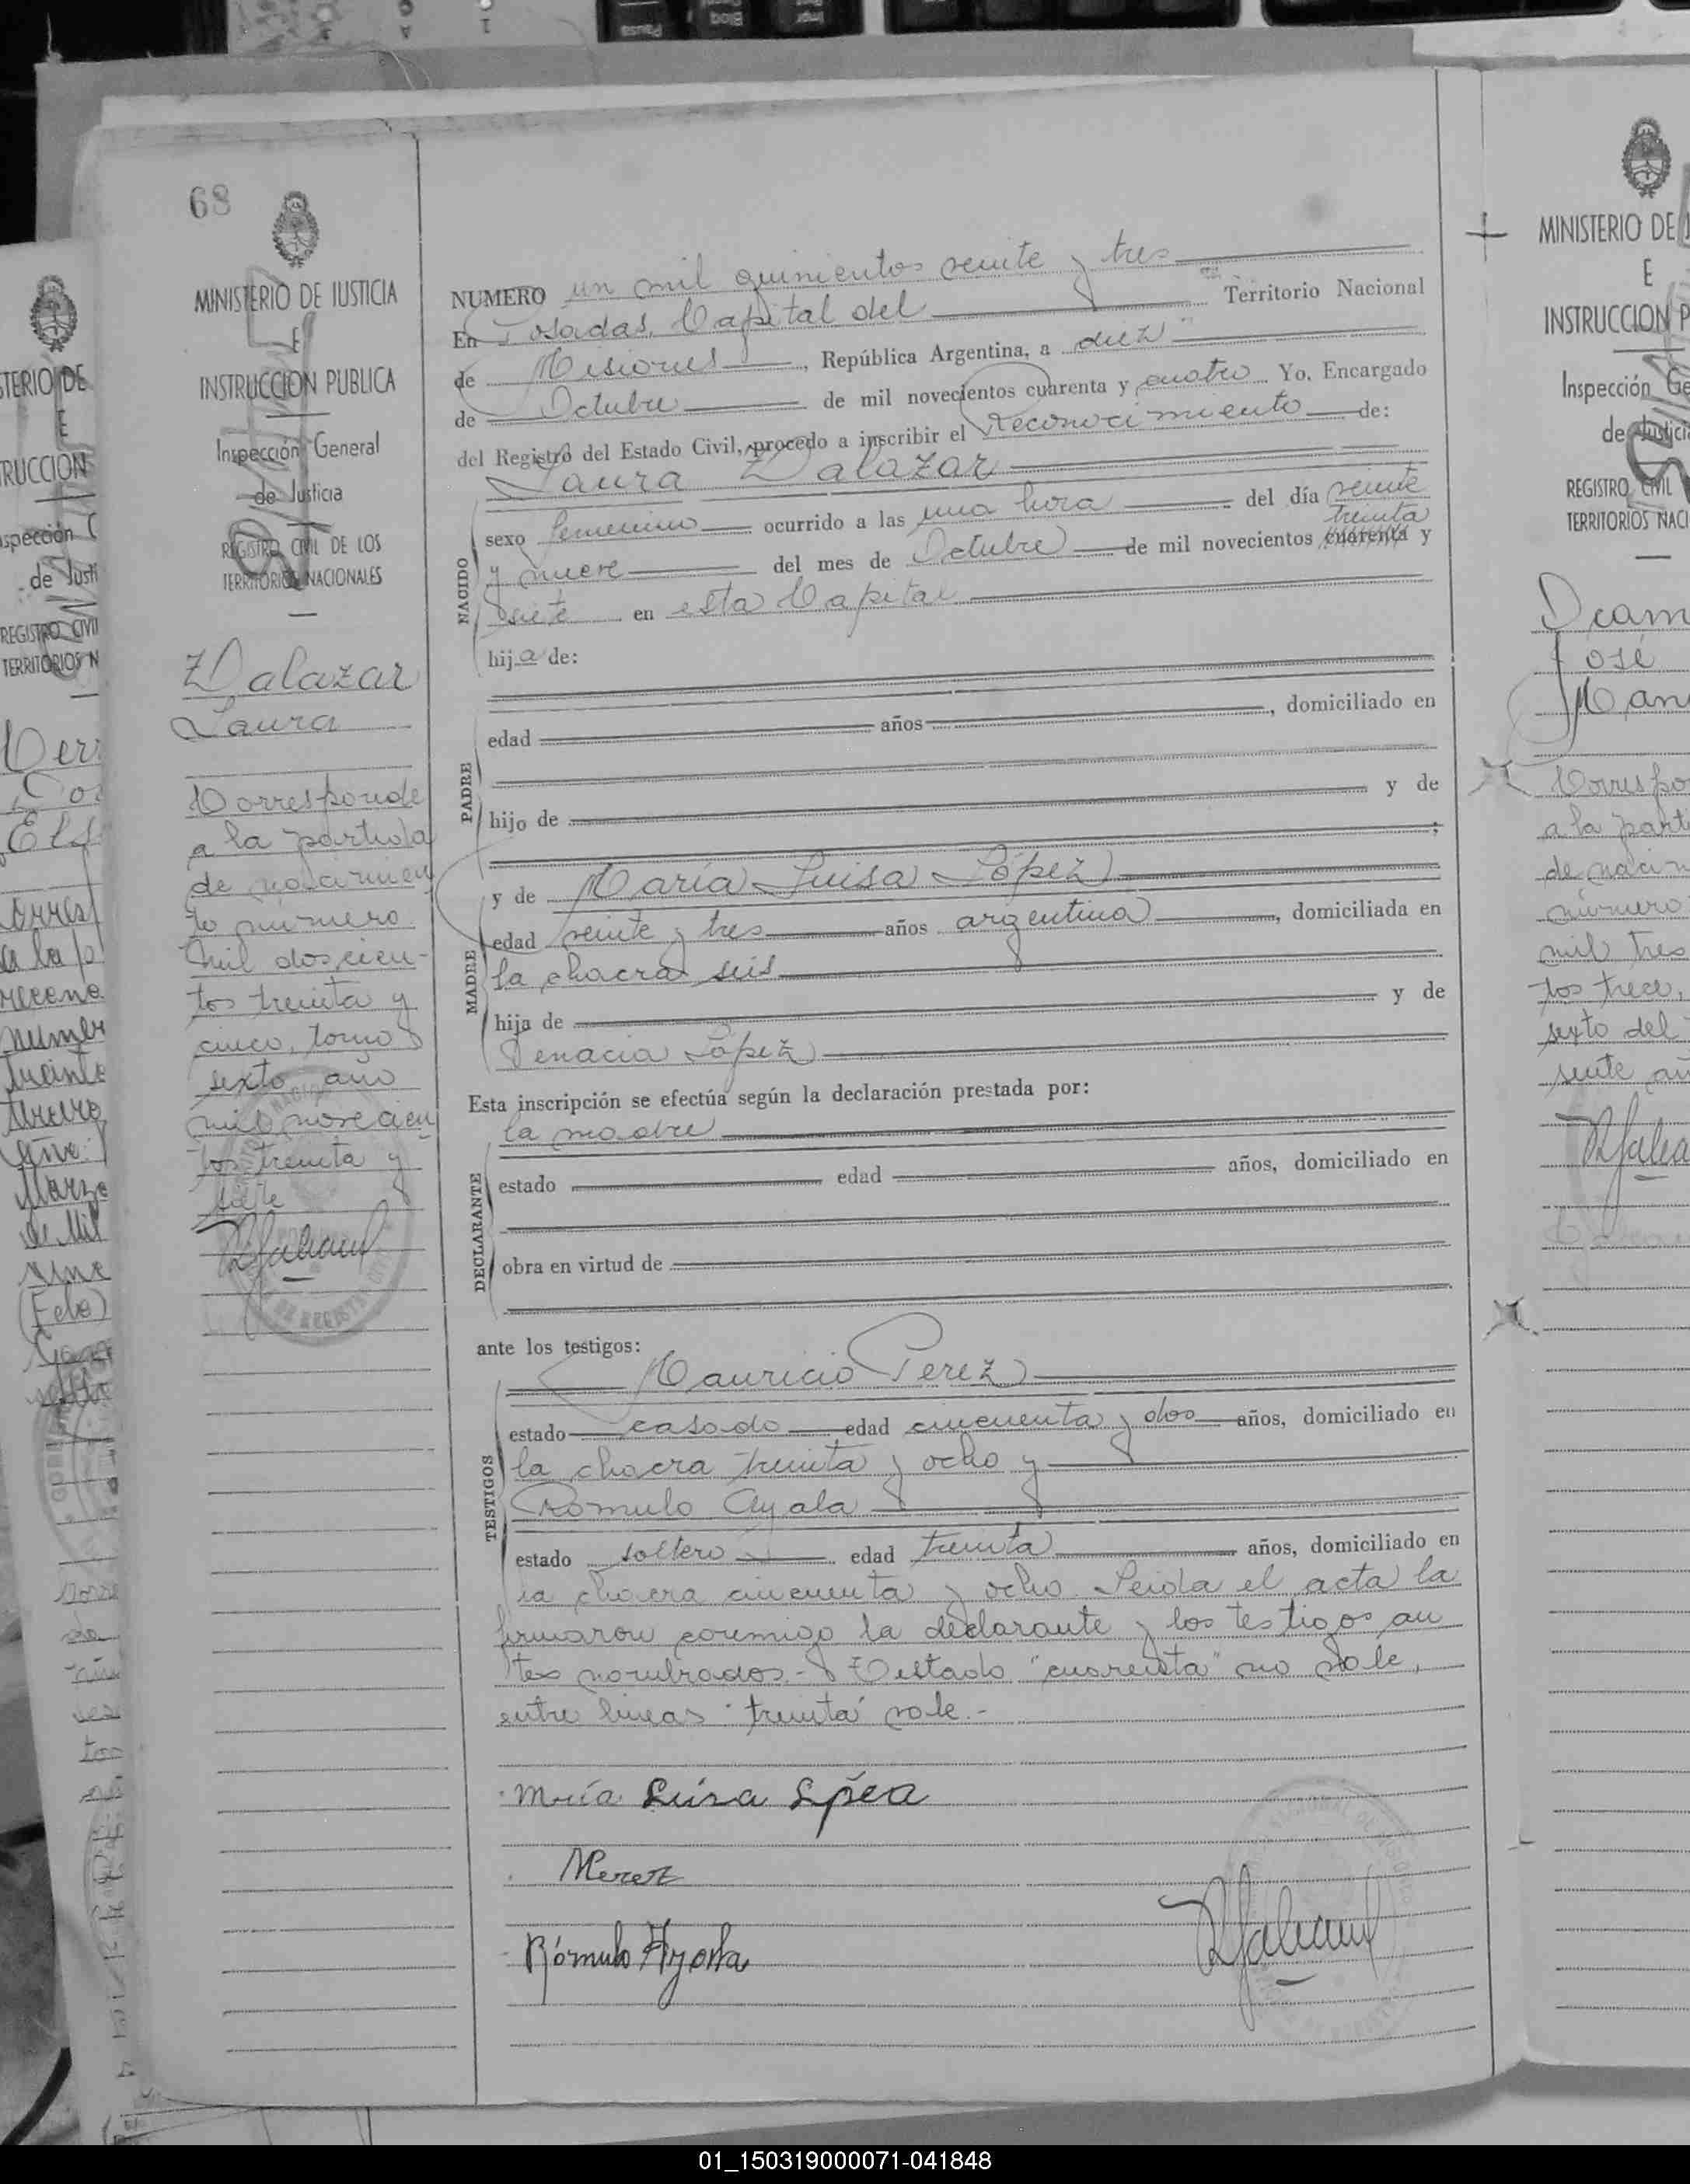 68
MINISTERIO DE JUSTICIA
E
INSTRUCCION PUBLICA
Inspección General
de Justicia
REGISTRO CIVIL DE LOS
TERRITORIOS NACIONALES
Zalazar
Laura
Corresponde
a la partida
de nacimien
to número
mil doscien-
tos treinta y
cinco, tomo
sexto año
mil novecien
tos treinta y
siete
NUMERO un mil quinientos veinte y tres
En Posadas, Capital del Territorio Nacional
de Misiones, República Argentina, a diez
de Octubre de mil novecientos cuarenta y cuatro Yo, Encargado
del Registro del Estado Civil, procedo a inscribir el reconocimiento de:
Laura Zalazar
NACIDO
sexo femenino ocurrido a las una hora del día veinte
treinta
y nueve del mes de Octubre de mil novecientos cuarenta y
siete en esta Capital
hija de:
PADRE
edad años, domiciliado en
hijo de y de
;
y de María Luisa López
MADRE
edad veinte y tres años argentina, domiciliada en
la chacra seis
hija de y de
Ienacia López
Esta inscripción se efectúa según la declaración prestada por:
la madre
DECLARANTE
estado edad años, domiciliado en
obra en virtud de
ante los testigos:
Mauricio Perez
TESTIGOS
estado casado edad cincuenta y dos años, domiciliado en
la chacra treinta y ocho y
Rómulo Ayala
estado soltero edad treinta años, domiciliado en
la chacra cincuenta y ocho. Leida el acta la
firmaron conmigo la declarante y los testigos an
tes nombrados.- Testado "cuarenta" no vale,
entre lineas "treinta" vale.-
María Luisa Lópea
MPerez
Rómulo Ayala
MINISTERIO DE J
E
INSTRUCCION P
Inspección Ge
de Justici
REGISTRO CIVIL
TERRITORIOS NACI
José
Correspo
a la parti
de nacim
número
mil tres
tos trece,
sexto del
sente añ
01_150319000071-041848